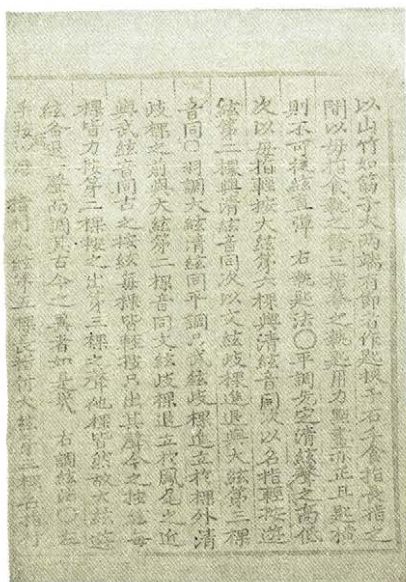 以山竹如筋子大兩端有節者作匙挾于右手食指長指之
間以母指食執之餘三指拳之執匙用力點畫亦正且匙
則不可挾絃直彈 右執匙法○平調先定淸絃聲之高低
次以母指輕按大絃第六棵與淸絃音同次以名指輕按遊
絃第二棵與淸絃音同次以文絃歧棵進退與大絃第三棵
音同○羽調大絃淸絃同平調只武絃歧棵進立於棵外淸
歧棵之前與大絃第二棵音同文絃歧棵退立於鳳足之近
與武絃音同古之按絃每棵皆輕按只出其聲今之按絃每
棵皆力按第二棵按之出第三棵之聲他棵皆然故大絃遊
絃令退一聲而調其古今之異者如是哉 右調絃法○左
手按 指 大絃第五棵長指按大絃第三棵名指